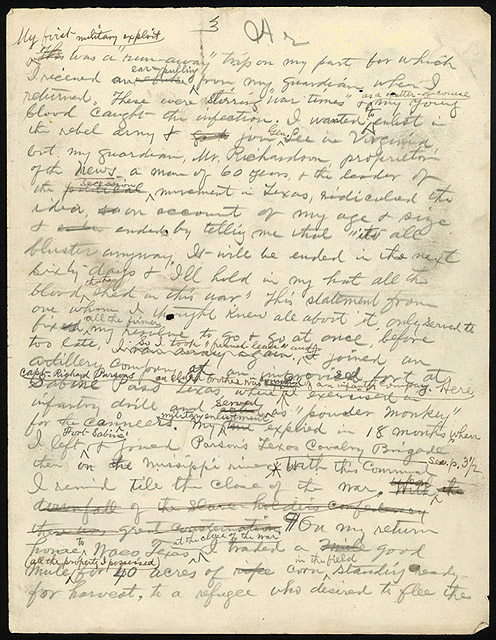 3
My first military exploit
This was a "run-away" trip on my part for which
ear pulling
I received from my guardian when I
as a matter of course
returned. These were stirring "war times" & my young
blood caught the infection. I wanted to enlist in
Gen.
the rebel army & join Lee in Virginia,
but my guardian, Mr. Richardson, proprietor
of the News a man of 60 years, & the leader of
secession
the political movement in Texas, ridiculed the
idea, on account of my age & size
& ended by telling me that "its all
bluster anyway. It will be ended in the next
sixty days & I'll hold in my hat all the
that's
blood shed in this war." This statement from
one whom I thought knew all about it, only served to
all the firmer
fix my resolve to go & go at once, before
So I took "french leave" and
too late, I ran away again, & joined an
artillery company at an improvised fort at
Capt. Richard Parsons an elder brother was of an infantry company. Here
Sabine Pass Texas, where I exercised in
served
infantry drill and as "powder monkey"
military enlistment
for the cannoneers. My expired in 18 months when
Fort Sabine
I left & joined Parson's Texas Cavalry Brigade
See p. 3½
then on the Mississippi river. With this Command
I remained till the close of the war. With the
downfall of the slave holders confederacy
there was great consternation. ¶ On my return
at the close of the war
home, to Waco, Texas I traded a good
(all the property I possessed) in the field
mule, for 40 acres of corn, standing ready
for harvest, to a refugee who desired to flee the